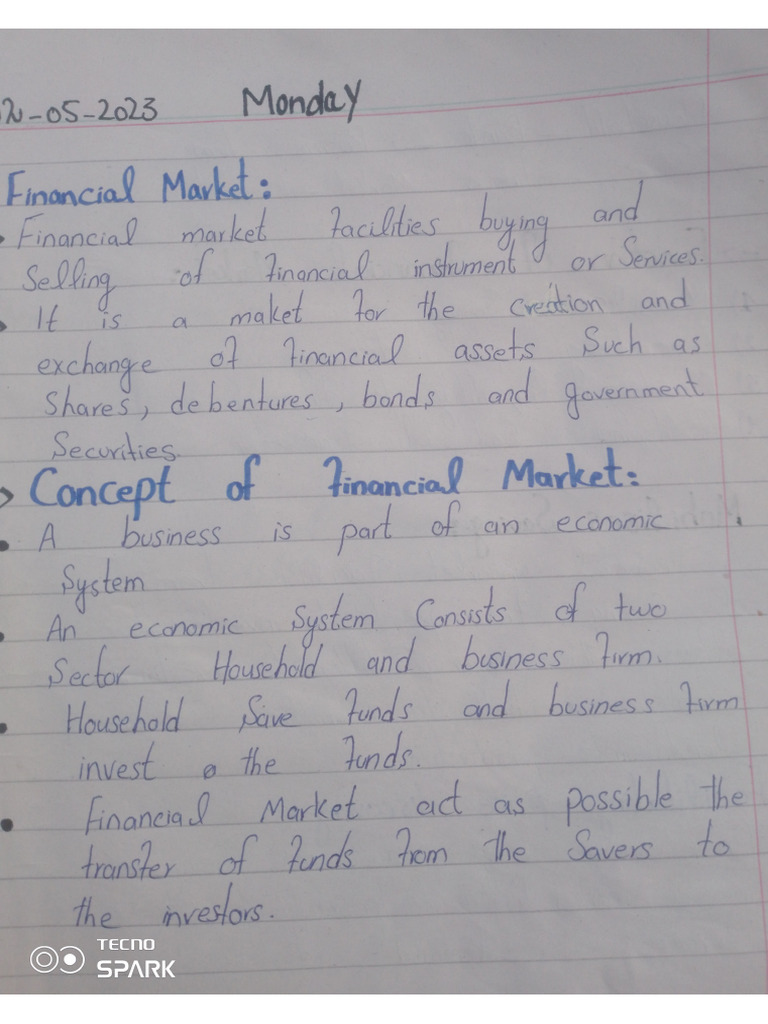 02-05-2023 Monday
Financial Market:
• Financial market facilities buying and
Selling of financial instrument or Services.
• It is a maket for the creation and
exchange of financial assets Such as
Shares, debentures, bonds and government
Securities.
> Concept of financial Market:
• A business is part of an economic
System
• An economic System Consists of two
Sector Household and business firm.
• Household Save funds and business firm
invest the funds.
• Financial Market act as possible the
transfer of funds from the Savers to
the investors.
TECNO
SPARK